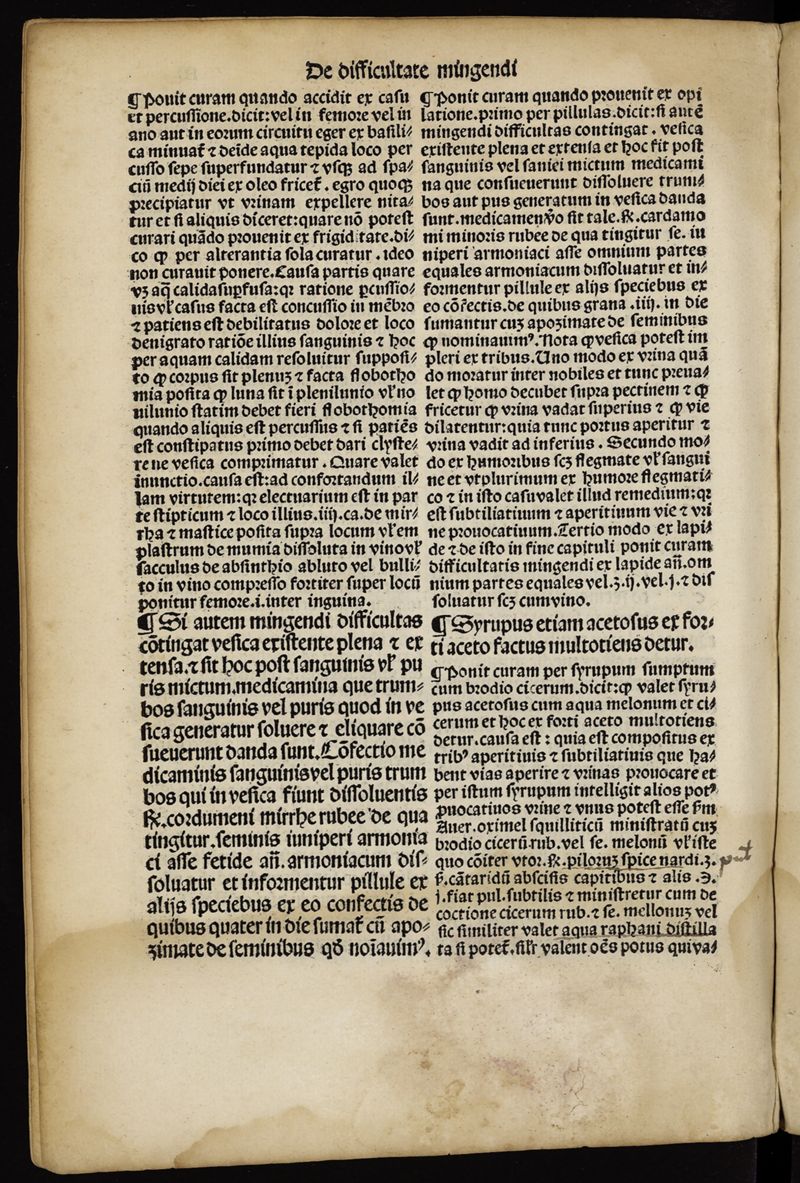 De difficultate mingendi
¶Ponit curam quando accidit ex casu
et percussione.dicit:vel in femore vel in
ano aut in eorum circuitu eger ex basili⸗
ca minuat᷑ ⁊ deīde aqua tepida loco per
cusso sepe superfundatur ⁊ vsqꝫ ad spa⸗
ciū medij diei ex oleo fricet᷑. egro quoqꝫ
precipiatur vt vrinam expellere nita⸗
tur et si aliquis diceret:quare nō potest
curari quādo prouenit ex frigiditate.di⸗
co ꝙ per alterantia sola curatur. ideo
non curauit ponere.Causa partis quare
vꝫ aq̄ calida supfusa:qꝛ ratione pcussio⸗
nis vl᷑ casus facta est concussio in mēbro
⁊ patiens est debilitatus dolore et loco
denigrato ratiōe illius sanguinis ⁊ hoc
per aquam calidam resoluitur supposi⸗
to ꝙ corpus sit plenuꝫ ⁊ facta flobotho
mia posita ꝙ luna sit ī plenilunio vl᷑ no
uilunio statim debet fieri flobothomia
quando aliquis est percussus ⁊ si patiēs
est constipatus primo debet dari clyste⸗
re ne vesica comprimatur. Quare valet
inunctio.causa est:ad confortandum il⸗
lam virtutem:qꝛ electuarium est in par
te stipticum ⁊ loco illius.iiij.ca.de mir⸗
rha ⁊ mastice posita supra locum vl᷑ em
plastrum de mumia dissoluta in vino vl᷑
sacculus de absinthio abluto vel bulli⸗
to in vino compresso fortiter super locū
ponitur femore.i.inter inguina.
¶Si autem mingendi difficultas
cōtingat vesica existente plena ⁊ ex
tensa.⁊ sit hoc post sanguinis vl᷑ pu
ris mictum.medicamina que trum⸗
bos sanguinis vel puris quod in ve
sica generatur soluere ⁊ eliquare cō
sueuerunt danda sunt.Cōfectio me
dicaminis sanguinis vel puris trum
bos qui in vesica fiunt dissoluentis
℞.cordumeni mirrhe rubee de qua
tingitur.seminis iuniperi armonia
ci asse fetide an̄.armoniacum dis⸗
soluatur et informentur pillule ex
alijs speciebus ex eo confectis de
quibus quater in die sumat᷑ cū apo⸗
zimate de seminibus qd̄ noīauimꝰ.
¶Ponit curam quando prouenit ex opi
latione.primo per pillulas.dicit:si autē
mingendi difficultas contingat. vesica
existente plena et extensa et hoc fit post
sanguinis vel saniei mictum medicami
na que consueuerunt dissoluere trum⸗
bos aut pus generatum in vesica danda
sunt.medicamen vo sit tale.℞.cardamo
mi minoris rubee de qua tingitur se. iu
niperi armoniaci asse omnium partes
equales armoniacum dissoluatur et in⸗
formentur pillule ex alijs speciebus ex
eo cōfectis.de quibus grana .iiij. in die
sumantur cuꝫ apozimate de seminibus
ꝙ nominauimꝰ.Nota ꝙ vesica potest im
pleri ex tribus.Uno modo ex vrina quā
do moratur inter nobiles et tunc preua⸗
let ꝙ homo decubet supra pectinem ⁊ ꝙ
fricetur ꝙ vrina vadat superius ⁊ ꝙ vie
dilatentur:quia tunc portus aperitur ⁊
vrina vadit ad inferius. Secundo mo⸗
do ex humoribus scꝫ flegmate vl᷑ sangui
ne et vtplurimum ex humore flegmati⸗
co ⁊ in isto casu valet illud remedium:qꝛ
est subtiliatiuum ⁊ aperitiuum vie ⁊ vri
ne prouocatiuum.Tertio modo ex lapi⸗
de ⁊ de isto in fine capituli ponit curam
difficultatis mingendi ex lapide an̄.om
nium partes equales vel.ʒ.ij.vel.j.⁊ dis
soluatur scꝫ cum vino.
¶Syrupus etiam acetosus ex for⸗
ti aceto factus multotiens detur.
¶Ponit curam per syrupum sumptum
cum brodio cicerum.dicit:ꝙ valet syru⸗
pus acetosus cum aqua melonum et ci⸗
cerum et hoc ex forti aceto multotiens
detur.causa est : quia est compositus ex
tribꝰ aperitiuis ⁊ subtiliatiuis que ha⸗
bent vias aperire ⁊ vrinas prouocare et
per istum syrupum intelligit alios potꝰ
puocatiuos vrine ⁊ vnus potest esse s̄m
Auer.oximel squilliticū ministratū cuꝫ
brodio cicerū.rub.vel se. melonū vl᷑ iste
quo cōiter vtor.℞.piloruꝫ spice nardi.ʒ.
ẜ.cātaridū abscisis capitibus ⁊ alis .℈.
j.fiat pul.subtilis ⁊ ministretur cum de
coctione cicerum rub.⁊ se. mellonuꝫ vel
sic similiter valet aqua raphani distilla
ta si potet᷑.sil᷑r valent oēs potus qui va⸗